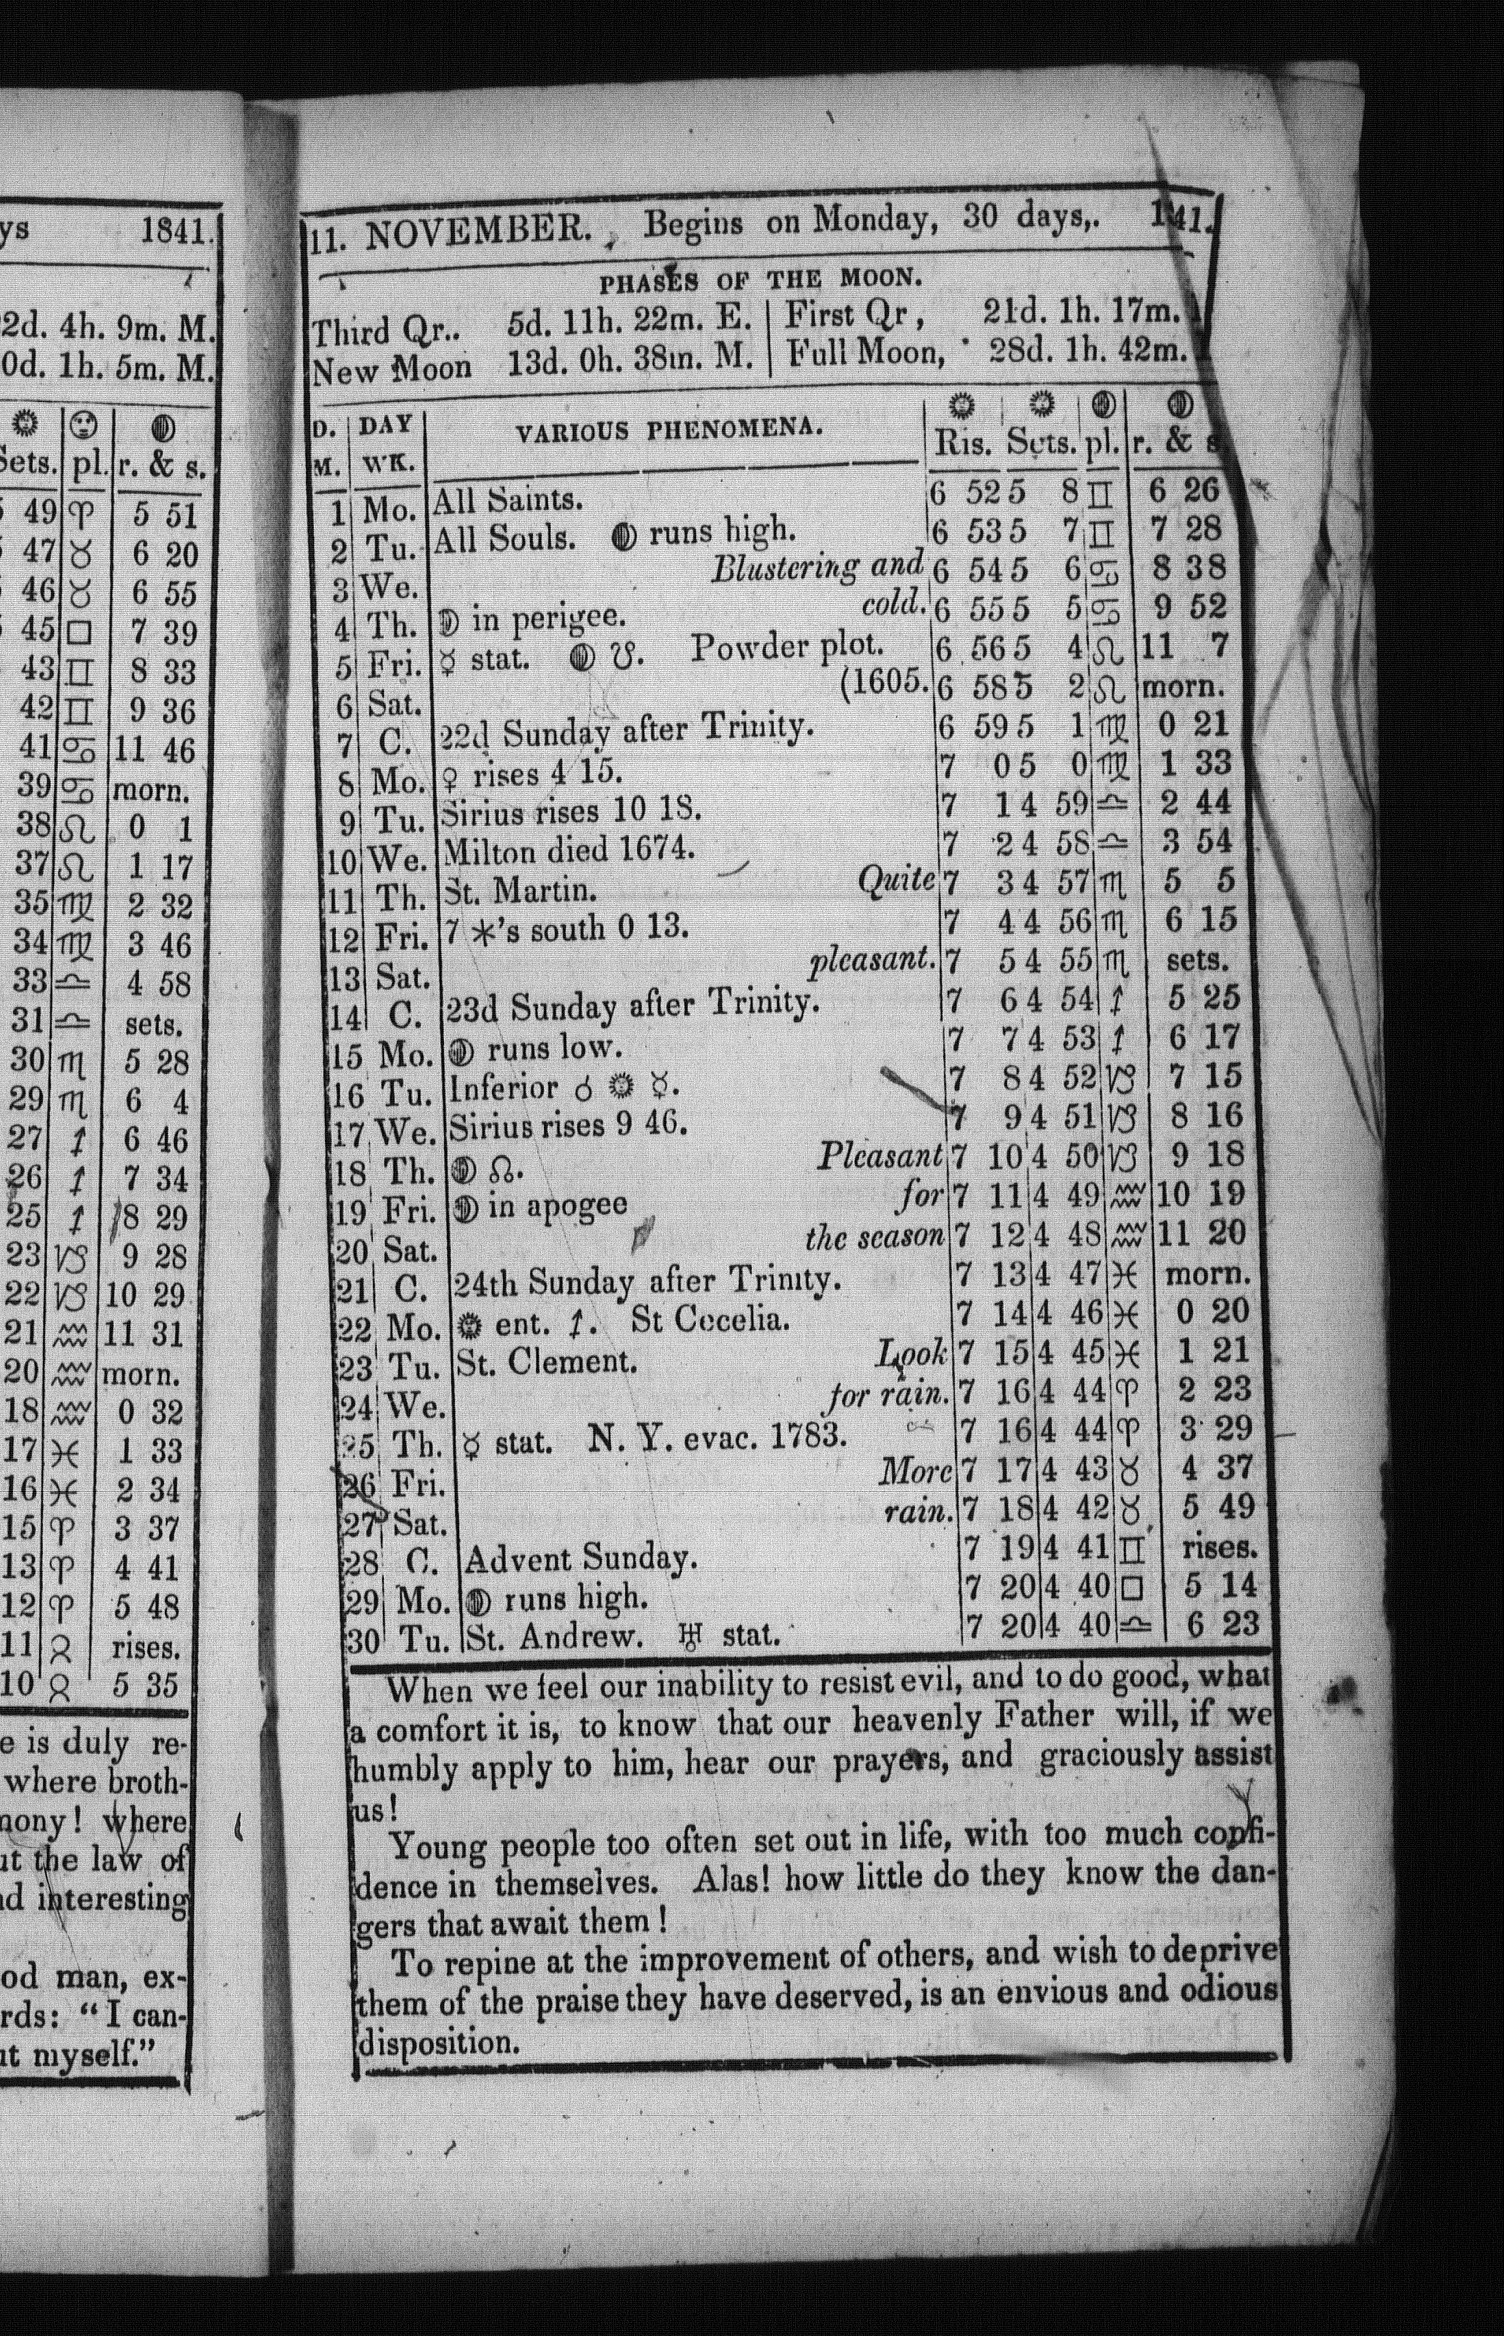 ys 1841.
2d. 4h. 9m. M.
0d. 1h. 5m. M.
Sets. pl. r. & s.
49 ♈ 5 51
47 ♉ 6 20
46 ♉ 6 55
45 □ 7 39
43 ♊ 8 33
42 ♊ 9 36
41 ♋ 11 46
39 ♋ morn.
38 ♌ 0 1
37 ♌ 1 17
35 ♍ 2 32
34 ♍ 3 46
33 ♎ 4 58
31 ♎ sets.
30 ♏ 5 28
29 ♏ 6 4
27 ♐ 6 46
26 ♐ 7 34
25 ♐ 8 29
23 ♑ 9 28
22 ♑ 10 29
21 ♒ 11 31
20 ♒ morn.
18 ♒ 0 32
17 ♓ 1 33
16 ♓ 2 34
15 ♈ 3 37
13 ♈ 4 41
12 ♈ 5 48
11 ♉ rises.
10 ♉ 5 35
e is duly re-
where broth-
mony! where
ut the law of
nd interesting
od man, ex-
rds: "I can-
ut myself."
11. NOVEMBER. Begins on Monday, 30 days,. 1841.
PHASES OF THE MOON.
Third Qr.. 5d. 11h. 22m. E. | First Qr, 21d. 1h. 17m.
New Moon 13d. 0h. 38m. M. | Full Moon, 28d. 1h. 42m.
D. M. DAY WK. VARIOUS PHENOMENA. Ris. Sets. pl. r. & s
1 Mo. All Saints. 6 52 5 8 ♊ 6 26
2 Tu. All Souls. ☽ runs high. 6 53 5 7 ♊ 7 28
3 We. Blustering and 6 54 5 6 ♋ 8 38
4 Th. ☽ in perigee. cold. 6 55 5 5 ♋ 9 52
5 Fri. ☿ stat. ☽ ☋. Powder plot. 6 56 5 4 ♌ 11 7
6 Sat. (1605. 6 58 5 2 ♌ morn.
7 C. 22d Sunday after Trinity. 6 59 5 1 ♍ 0 21
8 Mo. ♀ rises 4 15. 7 0 5 0 ♍ 1 33
9 Tu. Sirius rises 10 18. 7 1 4 59 ♎ 2 44
10 We. Milton died 1674. 7 2 4 58 ♎ 3 54
11 Th. St. Martin. Quite 7 3 4 57 ♏ 5 5
12 Fri. 7 *'s south 0 13. 7 4 4 56 ♏ 6 15
13 Sat. pleasant. 7 5 4 55 ♏ sets.
14 C. 23d Sunday after Trinity. 7 6 4 54 ♐ 5 25
15 Mo. ☽ runs low. 7 7 4 53 ♐ 6 17
16 Tu. Inferior ☌ ☉ ☿. 7 8 4 52 ♑ 7 15
17 We. Sirius rises 9 46. 7 9 4 51 ♑ 8 16
18 Th. ☽ ☊. Pleasant 7 10 4 50 ♑ 9 18
19 Fri. ☽ in apogee for 7 11 4 49 ♒ 10 19
20 Sat. the season 7 12 4 48 ♒ 11 20
21 C. 24th Sunday after Trinity. 7 13 4 47 ♓ morn.
22 Mo. ☉ ent. ♐. St Cecelia. 7 14 4 46 ♓ 0 20
23 Tu. St. Clement. Look 7 15 4 45 ♓ 1 21
24 We. for rain. 7 16 4 44 ♈ 2 23
25 Th. ☿ stat. N. Y. evac. 1783. 7 16 4 44 ♈ 3 29
26 Fri. More 7 17 4 43 ♉ 4 37
27 Sat. rain. 7 18 4 42 ♉ 5 49
28 C. Advent Sunday. 7 19 4 41 ♊ rises.
29 Mo. ☽ runs high. 7 20 4 40 □ 5 14
30 Tu. St. Andrew. ♅ stat. 7 20 4 40 ♎ 6 23
When we feel our inability to resist evil, and to do good, what
a comfort it is, to know that our heavenly Father will, if we
humbly apply to him, hear our prayers, and graciously assist
us!
Young people too often set out in life, with too much confi-
dence in themselves. Alas! how little do they know the dan-
gers that await them!
To repine at the improvement of others, and wish to deprive
them of the praise they have deserved, is an envious and odious
disposition.